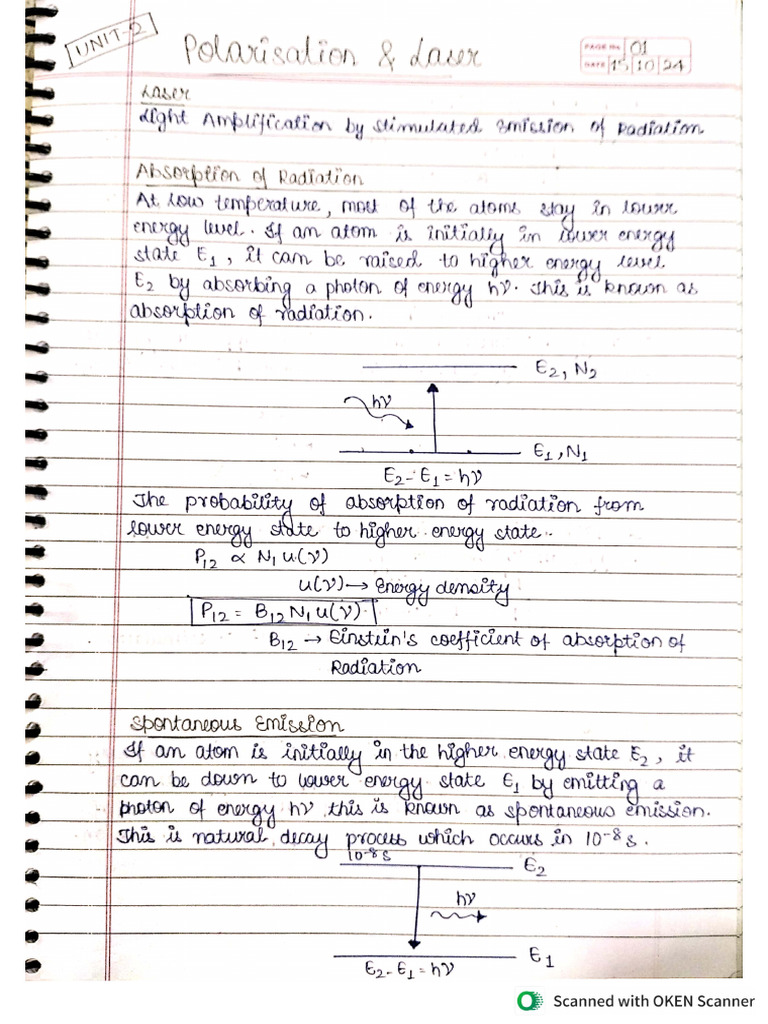 UNIT-2
Polarisation & Laser
PAGE No. 01
DATE 15/10/24
Laser
Light Amplification by Stimulated Emission of Radiation
Absorption of Radiation
At low temperature, most of the atoms stay in lower
energy level. If an atom is initially in lower energy
state E₁, it can be raised to higher energy level
E₂ by absorbing a photon of energy hν. This is known as
absorption of radiation.
E₂, N₂
hν
E₁, N₁
E₂ - E₁ = hν
The probability of absorption of radiation from
lower energy state to higher energy state.
P₁₂ ∝ N₁ u(ν)
u(ν) → Energy density
P₁₂ = B₁₂ N₁ u(ν)
B₁₂ → Einstein's coefficient of absorption of
Radiation
Spontaneous Emission
If an atom is initially in the higher energy state E₂, it
can be down to lower energy state E₁ by emitting a
photon of energy hν this is known as spontaneous emission.
This is natural decay process which occurs in 10⁻⁸ s.
10⁻⁸ s
E₂
hν
E₁
E₂ - E₁ = hν
Scanned with OKEN Scanner